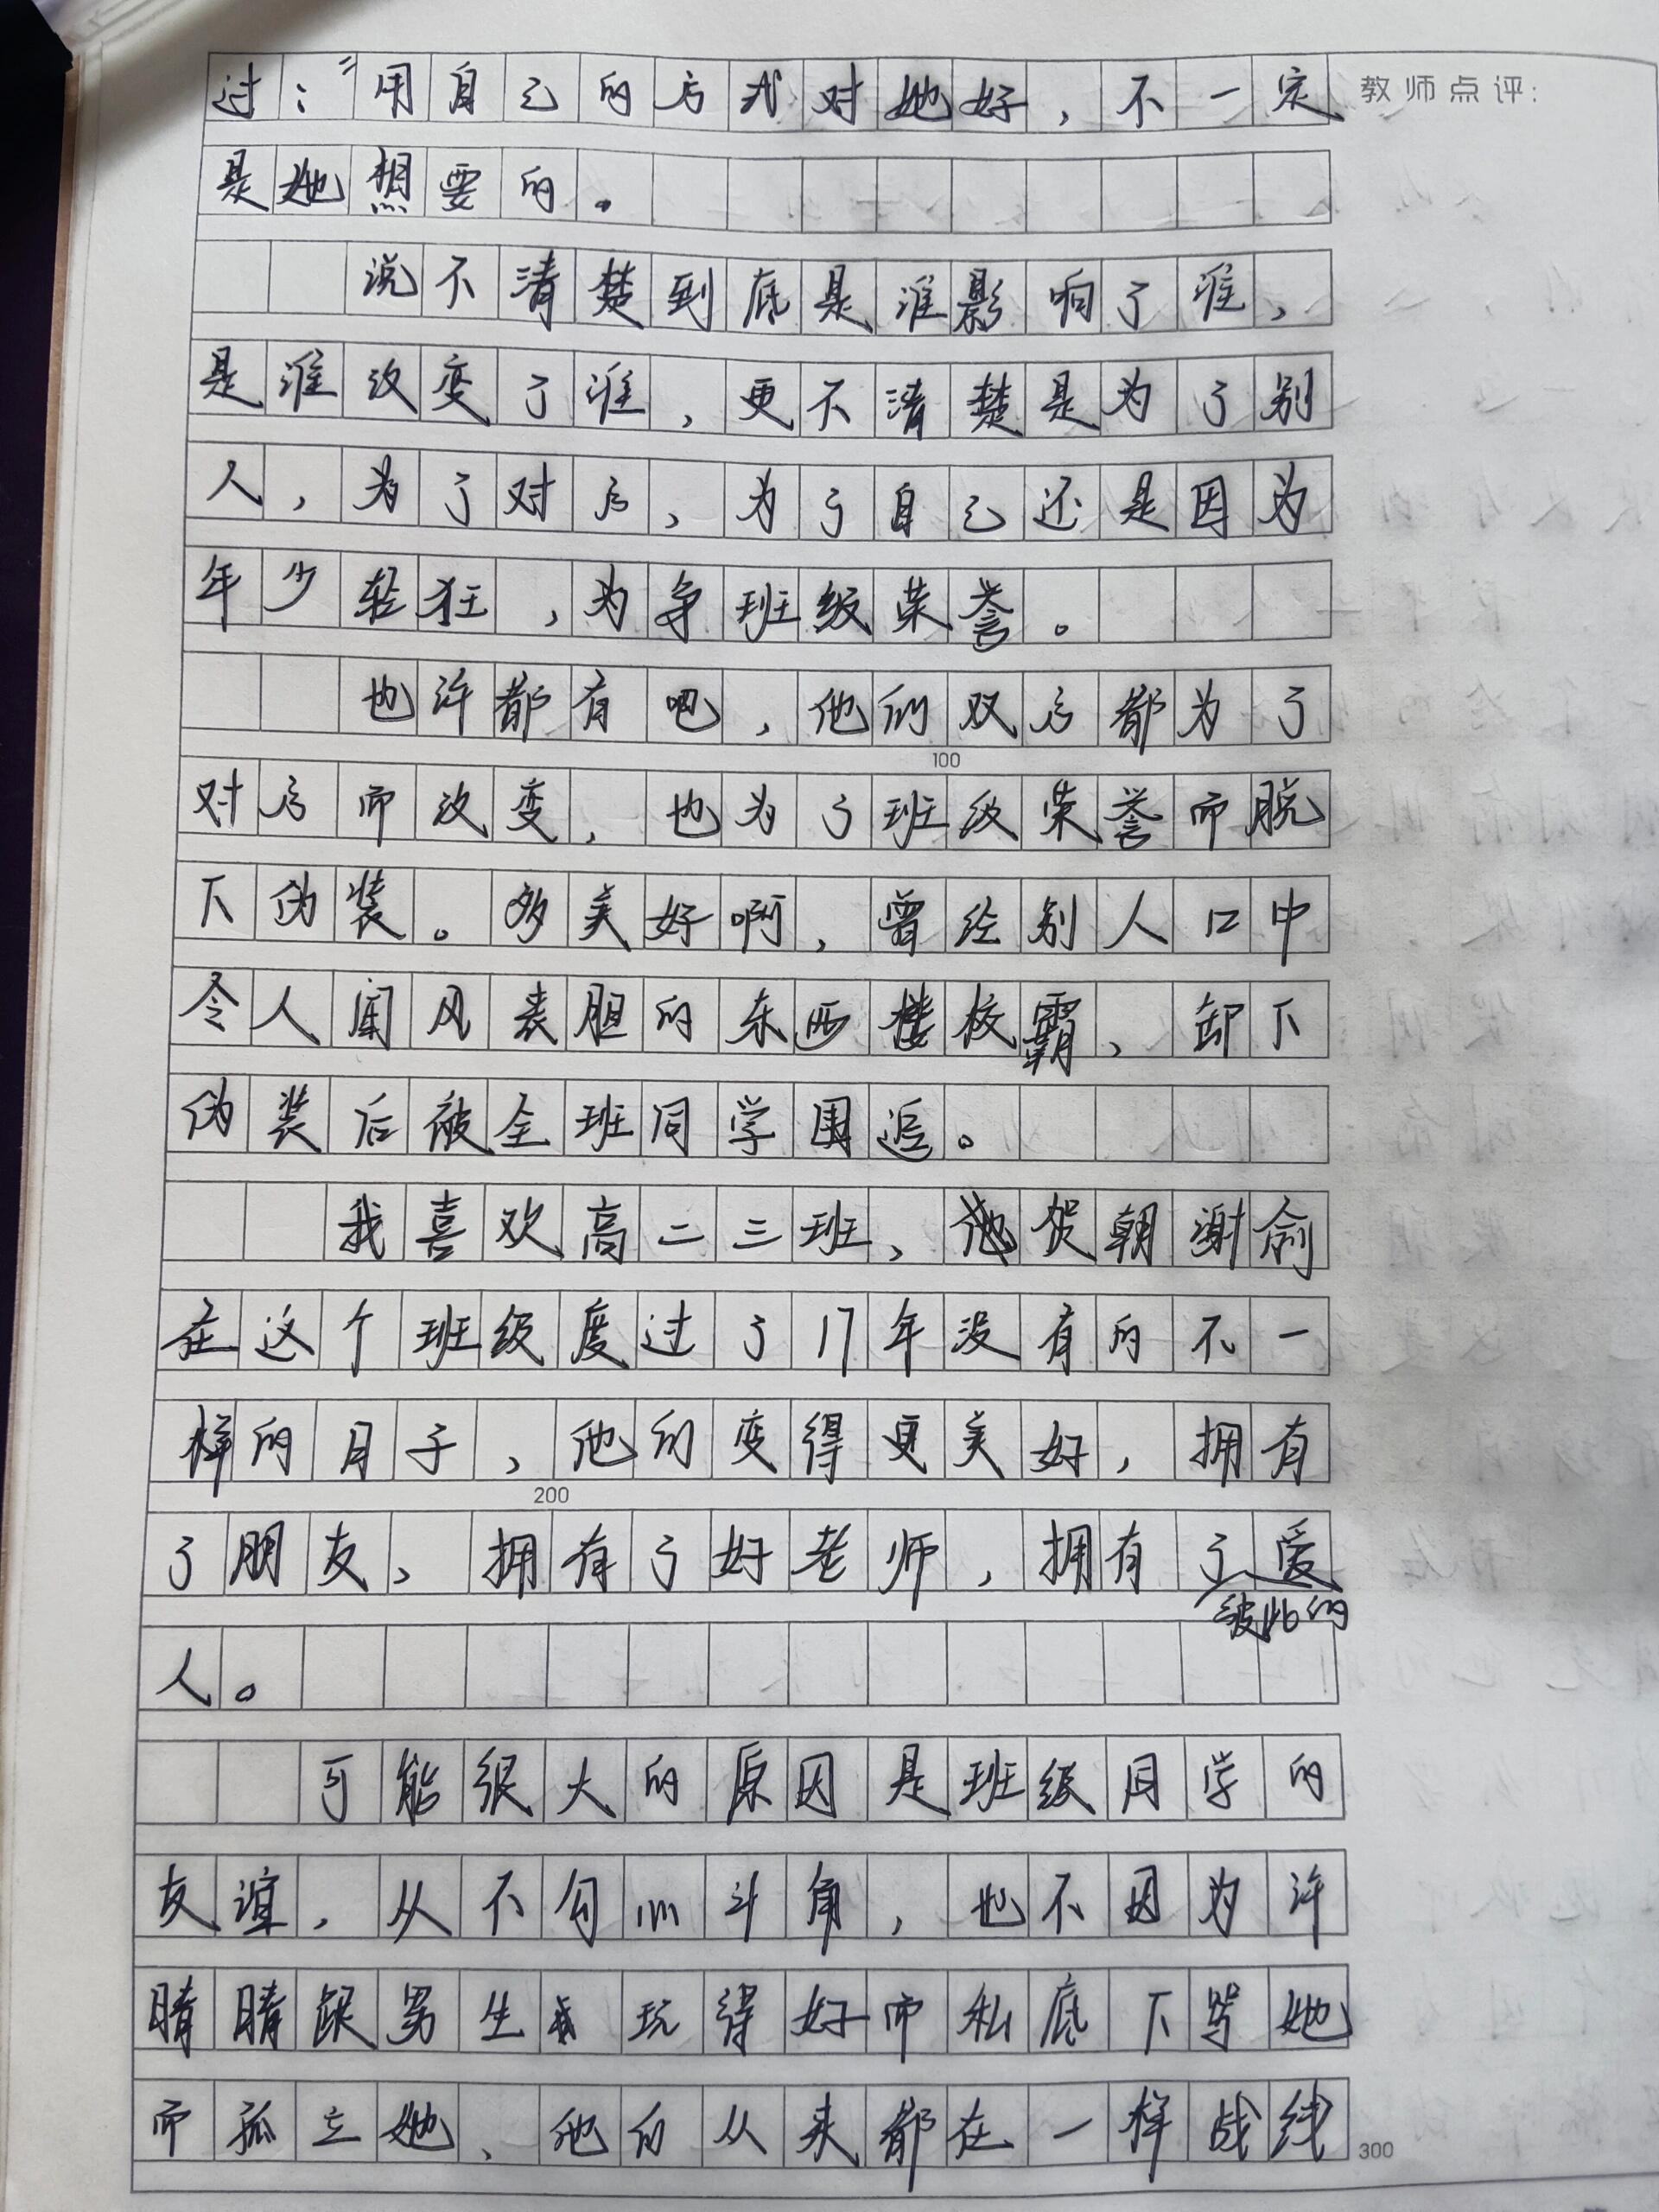 过：“用自己的方式对她好，不一定
教师点评：
是她想要的。
说不清楚到底是谁影响了谁，
是谁改变了谁，更不清楚是为了别
人，为了对方，为了自己还是因为
年少轻狂，为争班级荣誉。
也许都有吧，他们双方都为了
100
对方而改变，也为了班级荣誉而脱
下伪装。多美好啊，曾经别人口中
令人闻风丧胆的东西楼校霸，卸下
伪装后被全班同学围追。
我喜欢高二三班，贺朝谢俞
在这个班级度过了17年没有的不一
样的日子，他们变得更美好，拥有
200
了朋友，拥有了好老师，拥有了彼此的爱
人。
可能很大的原因是班级同学的
友谊，从不勾心斗角，也不因为许
晴晴跟男生玩得好而私底下骂她
而孤立她，他们从来都在一样战线
300